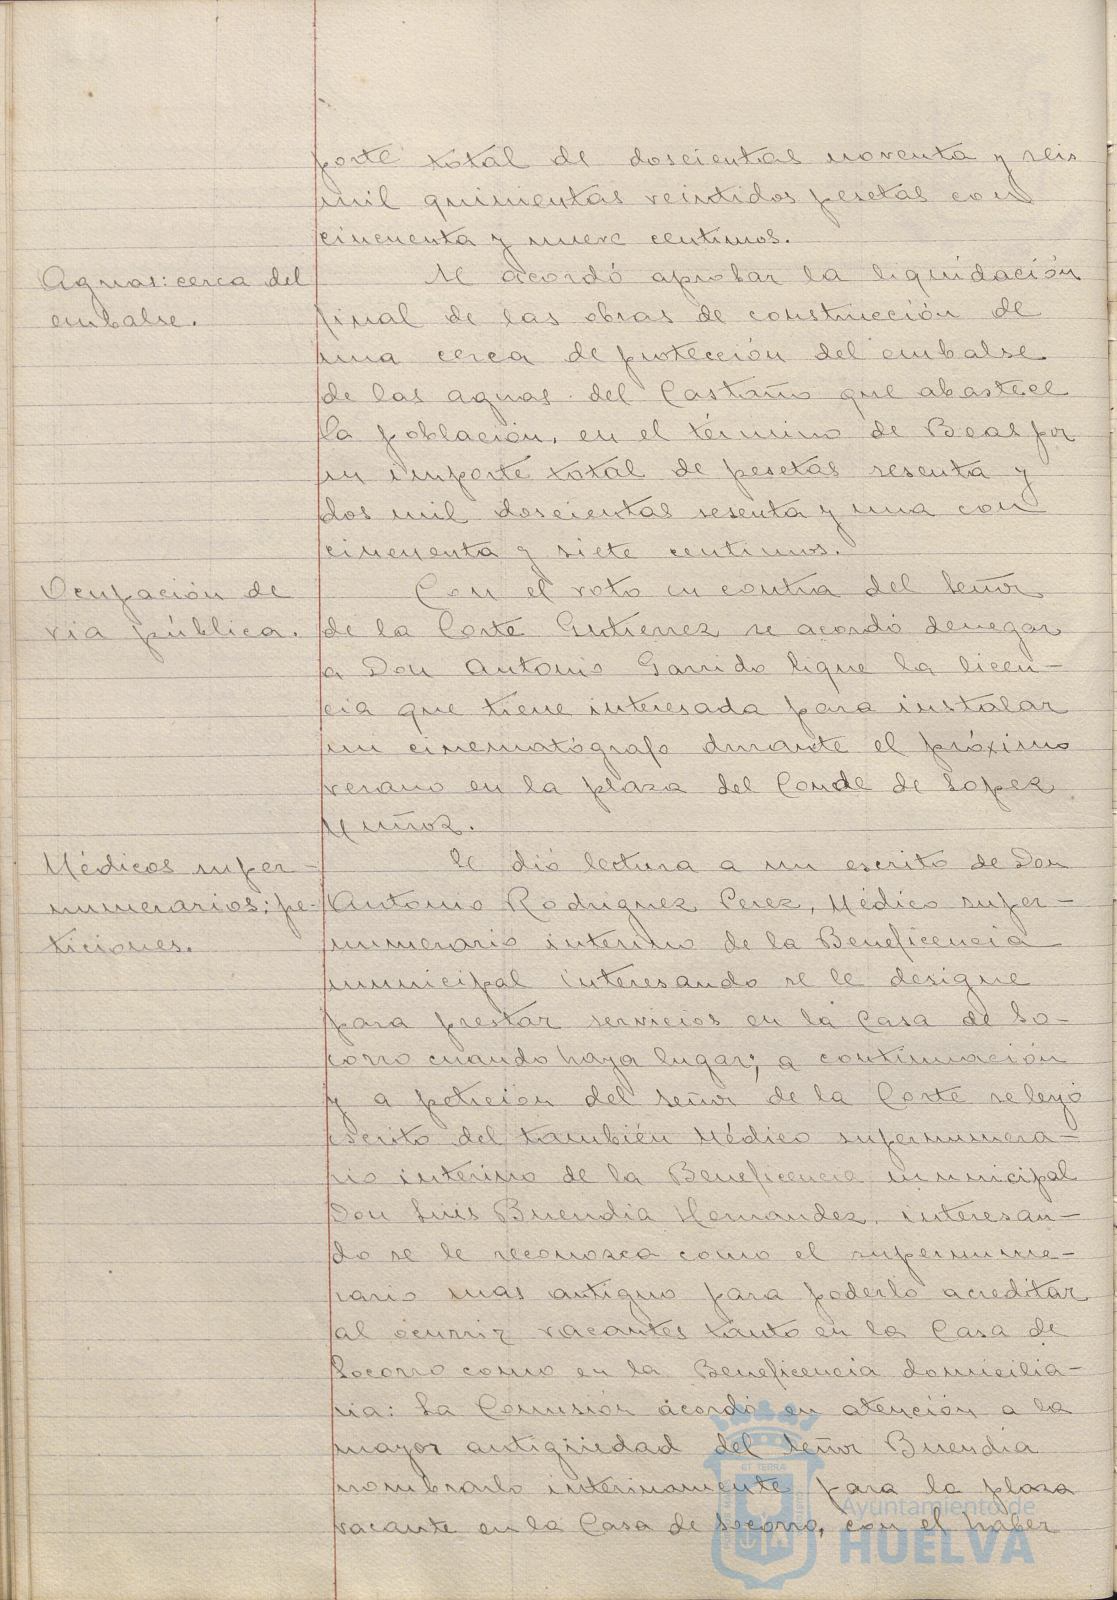 porte total de doscientas noventa y seis
mil quinientas veintidos pesetas con
cincuenta y nueve centimos.
Aguas: cerca del
embalse.
Se acordó aprobar la liquidación
final de las obras de construcción de
una cerca de protección del embalse
de las aguas del Castaño que abastece
la población, en el término de Beas por
un importe total de pesetas sesenta y
dos mil doscientas sesenta y una con
cincuenta y siete centimos.
Ocupación de
via pública.
Con el voto en contra del Señor
de la Corte Gutierrez se acordó denegar
a Don Antonio Garrido ligue la licen-
cia que tiene interesada para instalar
un cinematógrafo durante el próximo
verano en la plaza del Conde de Lopez
Muñoz.
Médicos super-
numerarios; pe-
ticiones.
Se dió lectura a un escrito de Don
Antonio Rodriguez Perez, Médico super-
numerario interino de la Beneficencia
municipal interesando se le designe
para prestar servicios en la Casa de So-
corro cuando haya lugar; a continuación
y a petición del señor de la Corte se leyó
escrito del también Médico supernumera-
rio interino de la Beneficencia municipal
Don Luis Buendia Hernandez, interesan-
do se le reconozca como el supernume-
rario mas antiguo para poderlo acreditar
al ocurrir vacantes tanto en la Casa de
Socorro como en la Beneficencia domicilia-
ria: La Comisión acordó en atención a la
mayor antigüedad del Señor Buendia
nombrarlo interinamente para la plaza
vacante en la Casa de Socorro, con el haber
Ayuntamiento de
HUELVA